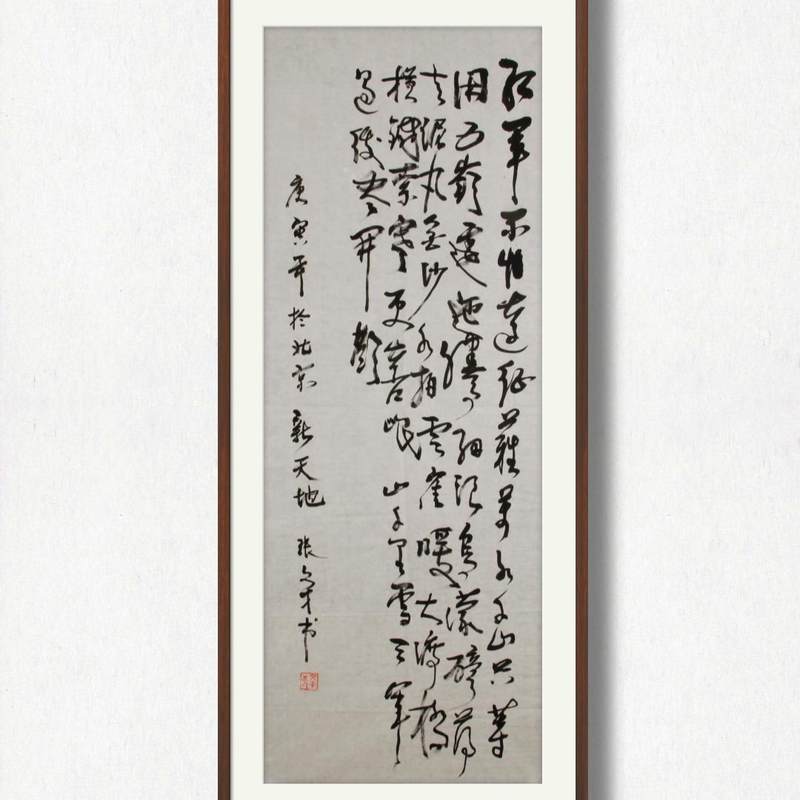 红军不怕远征難萬水千山只等
闲五嶺逶迤腾细浪乌蒙磅礴
走泥丸金沙水拍雲崖暖大渡橋
横铁索寒更喜岷山千里雪三军
過後尽开颜
庚寅年於北京新天地 张文才书